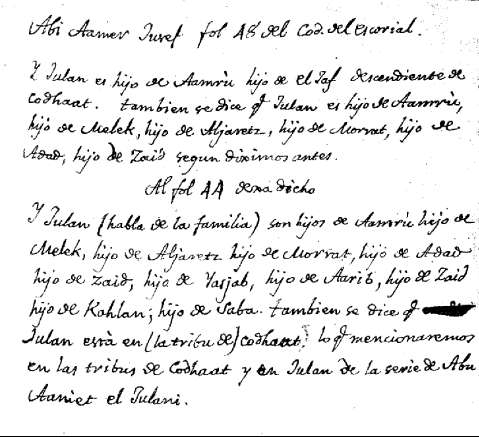 Abi Aamer Jusef fol 48 del Cod. del escorial.
Y Julan es hijo de Aamrù hijo de el Jaf descendiente de
Codhaat. tambien se dice q̃ Julan es hijo de Aamrù,
hijo de Melek, hijo de Aljaretz, hijo de Morrat, hijo de
Adad, hijo de Zaid segun diximos antes.
Al fol 44 dexa dicho
Y Julan (habla de la familia) son hijos de Aamrù hijo de
Melek, hijo de Aljaretz hijo de Morrat, hijo de Adad
hijo de Zaid, hijo de Yasjab, hijo de Aarib, hijo de Zaid
hijo de Kahlan; hijo de Saba. tambien se dice q̃
Julan està en (la tribu de) Codhaat: lo q̃ mencionaremos
en las tribus de Codhaat y en Julan de la serie de Abu
el Julani.